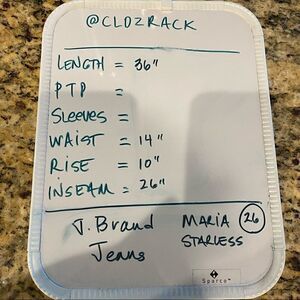 @CLOZRACK
LENGTH = 36"
PTP =
SLEEVES =
WAIST = 14"
RISE = 10"
INSEAM = 26"
J. Brand MARIA 26
Jeans STARLESS
Sparco™